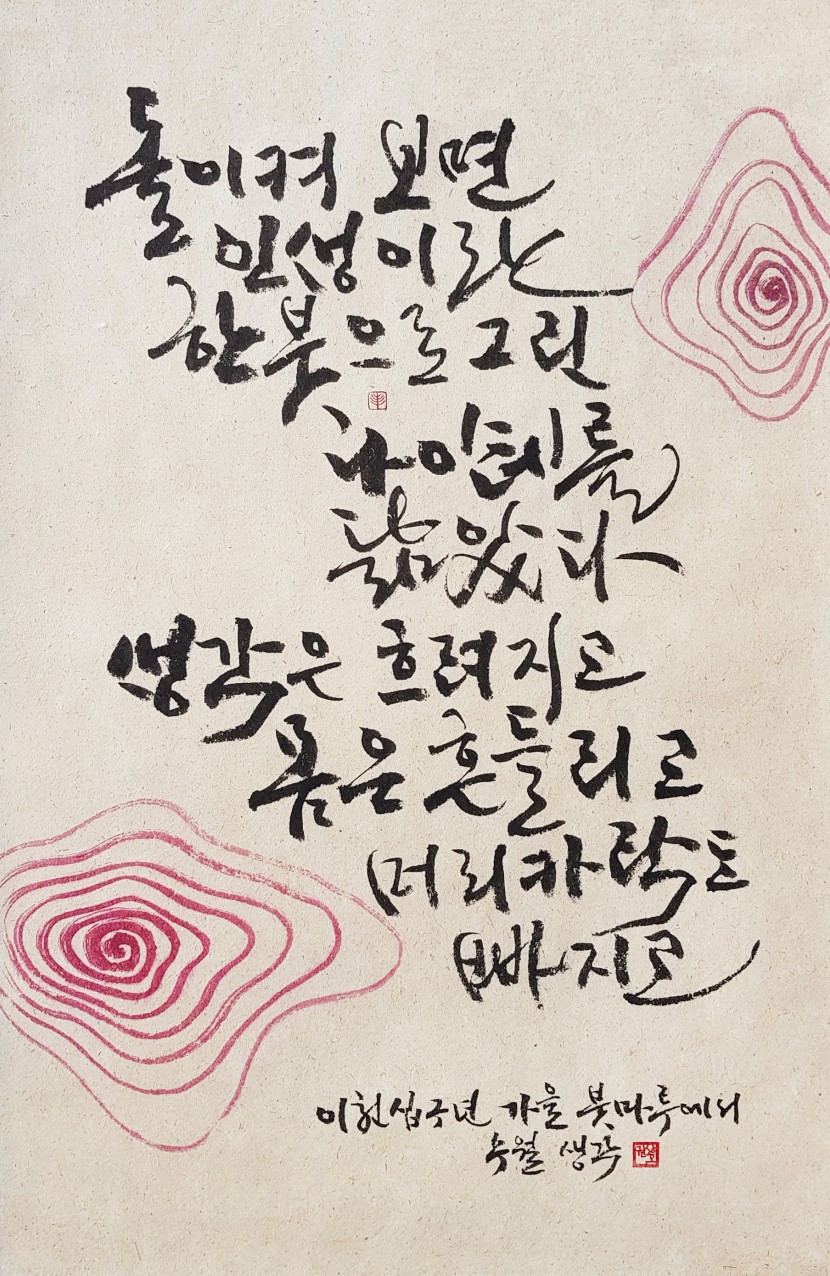 돌이켜 보면
인생이란
한붓으로 그린
나이테를
닮았다
생각은 흐려지고
몸은 흔들리고
머리카락도
빠지고
이천십구년 가을 붓마루에서
수월 생각